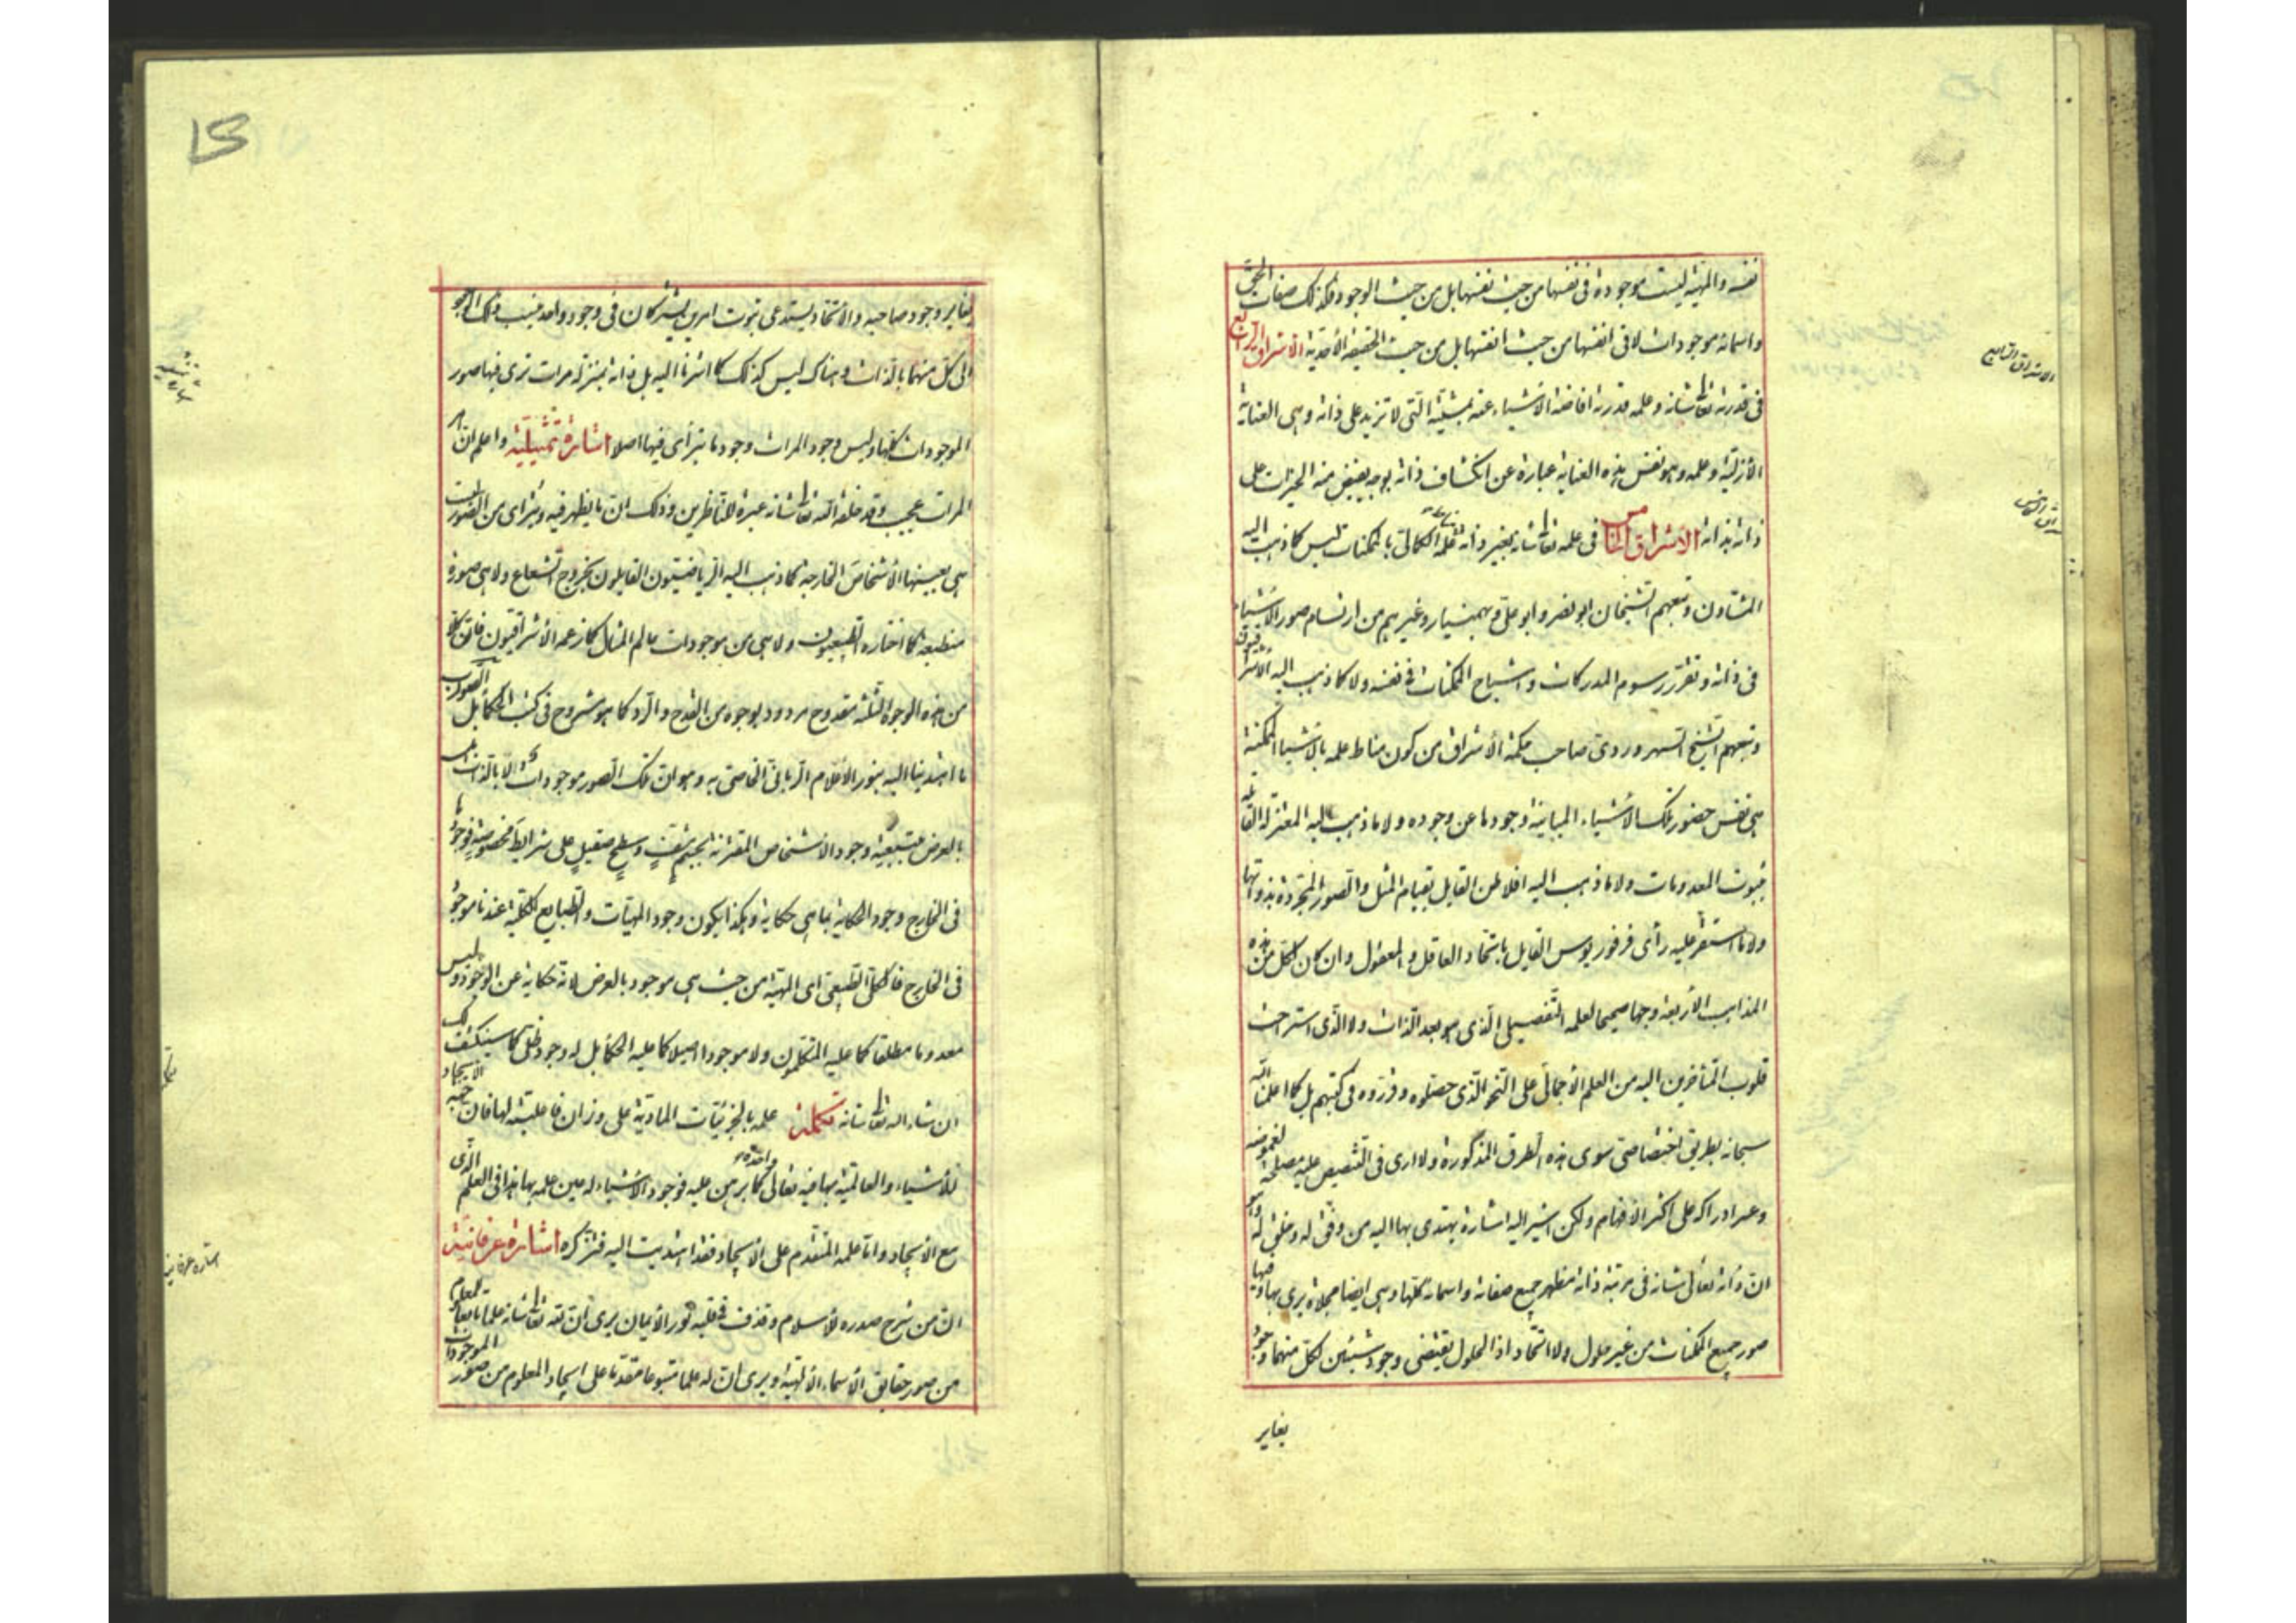 نفسه والمهيّة ليست موجودة فى نفسها من حيث نفسها بل من حيث الوجود فكذلك صفات الحق
واسمائه موجودات لا فى انفسها من حيث انفسها بل من حيث الحقيقة الأحدية الاشراق الرابع
فى قدرته تعا شانه وعلمه قدرته افاضة الاشياء عنه بمشيّته الّتى لا تزيد على ذاته وهى العناية
الأزليّة وعلمه وهو نفس هذه العناية عبارة عن انكشاف ذاته بوجه يفيض منه الخيرات على
ذاته بذاته الأشراق الخامس فى علمه تعا شانه بغير ذاته علمه الكمالى بالممكنات ليس كما ذهب اليه
المشاون وتبعهم الشيخان ابو نصر وابو على وبهمنيار وغيرهم من ارتسام صور الأشياء
فى ذاته وتقرر رسوم المدركات واشباح الممكنات فى نفسه ولا كما ذهب اليه الأشراقيون
وتبعهم الشيخ السهروردى صاحب حكمة الأشراق من كون مناط علمه بالأشياء الممكنة
هى نفس حضور تلك الأشياء المباينة وجودها عن وجوده ولا ما ذهب اليه المعتزلة القائلة
بثبوت المعدومات ولا ما ذهب اليه افلاطن القايل بقيام المثل والصور المجردة بذواتها
ولا ما استقر عليه رأى فرفوريوس القايل باتحاد العاقل والمعقول وان كان لكل من هذه
المذاهب الأربعة وجها صحيحا لعلمه التفصيلى الّذى هو بعد الذات ولا الّذى استراحت
قلوب المتأخرين اليه من العلم الأجمالى على النحو الّذى حصلوه وقرروه فى كتبهم بل كما اعلمنا الله
سبحانه بطريق اختصاصى سوى هذه الطرق المذكورة ولا ارى فى التنصيص عليه مصلحة لغموضه
وعسر ادراكه على اكثر الأفهام ولكن اشير اليه اشارة يهتدى بها اليه من وفق له وخلق له وهو
ان ذاته تعالى شانه فى مرتبة ذاته مظهر جميع صفاته واسمائه كلها وهى ايضا مجلاة يرى بها وفيها
صور جميع الممكنات من غير حلول ولا اتحاد اذ الحلول يقتضى وجود شيئين لكل منهما وجود
يغاير
الاشراق الرابع
يغاير وجود صاحبه والأتحاد يستدعى ثبوت امرين يشتركان فى وجود واحد ينسب ذلك الوجود
الى كل منهما بالذات وهناك ليس كذلك كما اشرنا اليه بل ذاته بمنزلة مرات ترى فيها صور
الموجودات كلها وليس وجود المرات وجود ما يترآى فيها اصلا اشارة تمثيلية واعلم ان امر
المرات عجيب وقد خلقه الله تعا شانه عبرة للناظرين وذلك ان ما يظهر فيه ويترآى من الصور ليست
هى بعينها الأشخاص الخارجة كما ذهب اليه الرياضيون القايلون بخروج الشعاع ولا هى صورة
منطبعة كما اختاره الطبيعيون ولا هى من موجودات عالم المثال كما زعمه الأشراقيون فان كلا
من هذه الوجوه الثلثة مقدوح مردود بوجوه من القدح والرد كما هو مشروح فى كتب الحكماء بل الصواب
ما اهتدينا اليه بنور الأعلام الربانى الخاصى به وهو ان تلك الصور موجودات لا بالذات بل
بالعرض بتبعية وجود الأشخاص المقترنة بجسم مشفٍ وسطح صقيل على شرايط مخصوصة فوجودها
فى الخارج وجود الحكاية بما هى حكاية وهكذا يكون وجود المهيّات والطبايع الكلية عندنا موجود
فى الخارج فالكلى الطبيعى اى المهية من حيث هى موجود بالعرض لانه حكاية عن الوجود وليس
معدوما مطلقا كما عليه المتكلمون ولا موجودا اصيلا كما عليه الحكماء بل له وجود ظلى كما سينكشف لك
ان شاء الله تعا شانه تكملة علمه بالجزئيات المادية على وزان فاعليته لها فان جهة الأيجاد
للأشياء والعالمية بها فيه تعالى واحدة كما برهن عليه فوجود الأشياء له عين علمه بها هذا فى العلم الّذى
مع الأيجاد واما علمه المتقدم على الأيجاد فقد اهتديت اليه فتذكره اشارة عرفانية
ان من شرح صدره للأسلام وقذف فى قلبه نور الأيمان يرى ان لله تعا شانه علما تابعا للمعلوم
من صور حقايق الأسماء الألهية ويرى ان له علما متبوعا مقدما على ايجاد المعلوم من صور الموجودات
اشارة عرفانية